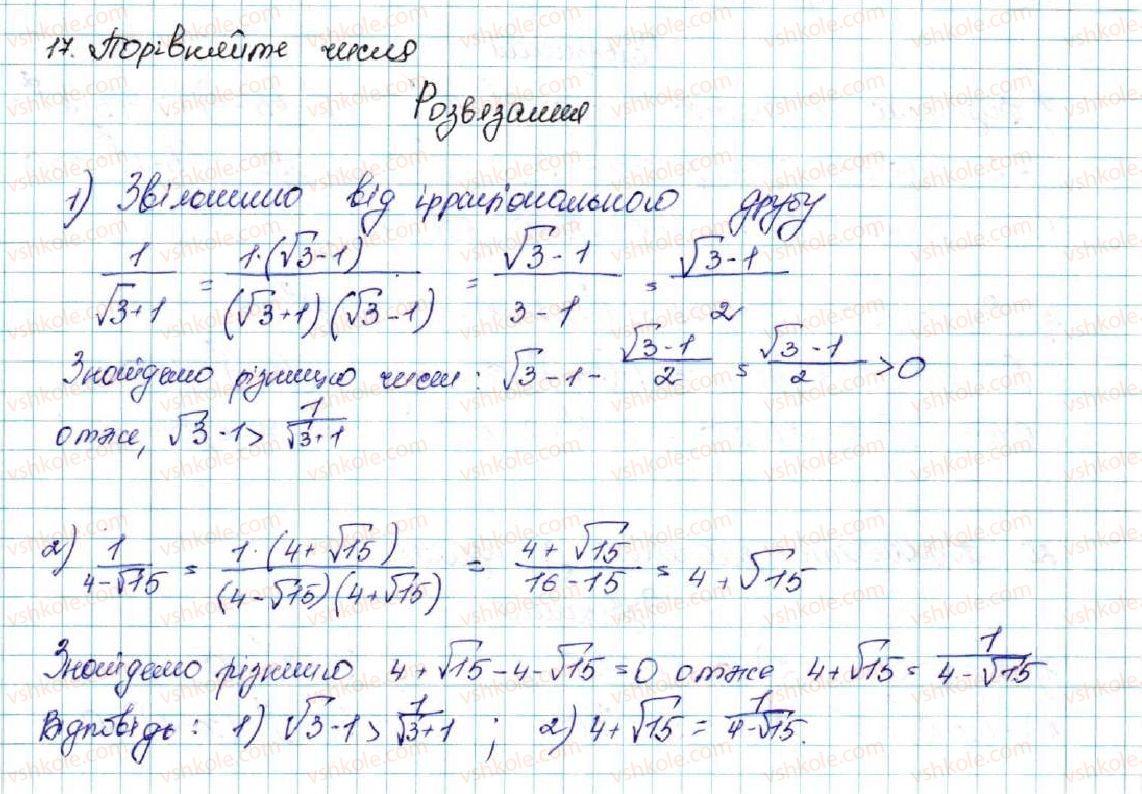 17. Порівняйте числа
Розвязання
1) Звільнимо від ірраціонального другу
1/(√3+1) = 1·(√3-1)/((√3+1)(√3-1)) = (√3-1)/(3-1) = (√3-1)/2
Знайдемо різницю чисел: √3-1 - (√3-1)/2 = (√3-1)/2 > 0
отже, √3-1 > 1/(√3+1)
2) 1/(4-√15) = 1·(4+√15)/((4-√15)(4+√15)) = (4+√15)/(16-15) = 4+√15
Знайдемо різницю 4+√15-4-√15=0 отже 4+√15 = 1/(4-√15)
Відповідь: 1) √3-1 > 1/(√3+1) ; 2) 4+√15 = 1/(4-√15).
vshkole.com